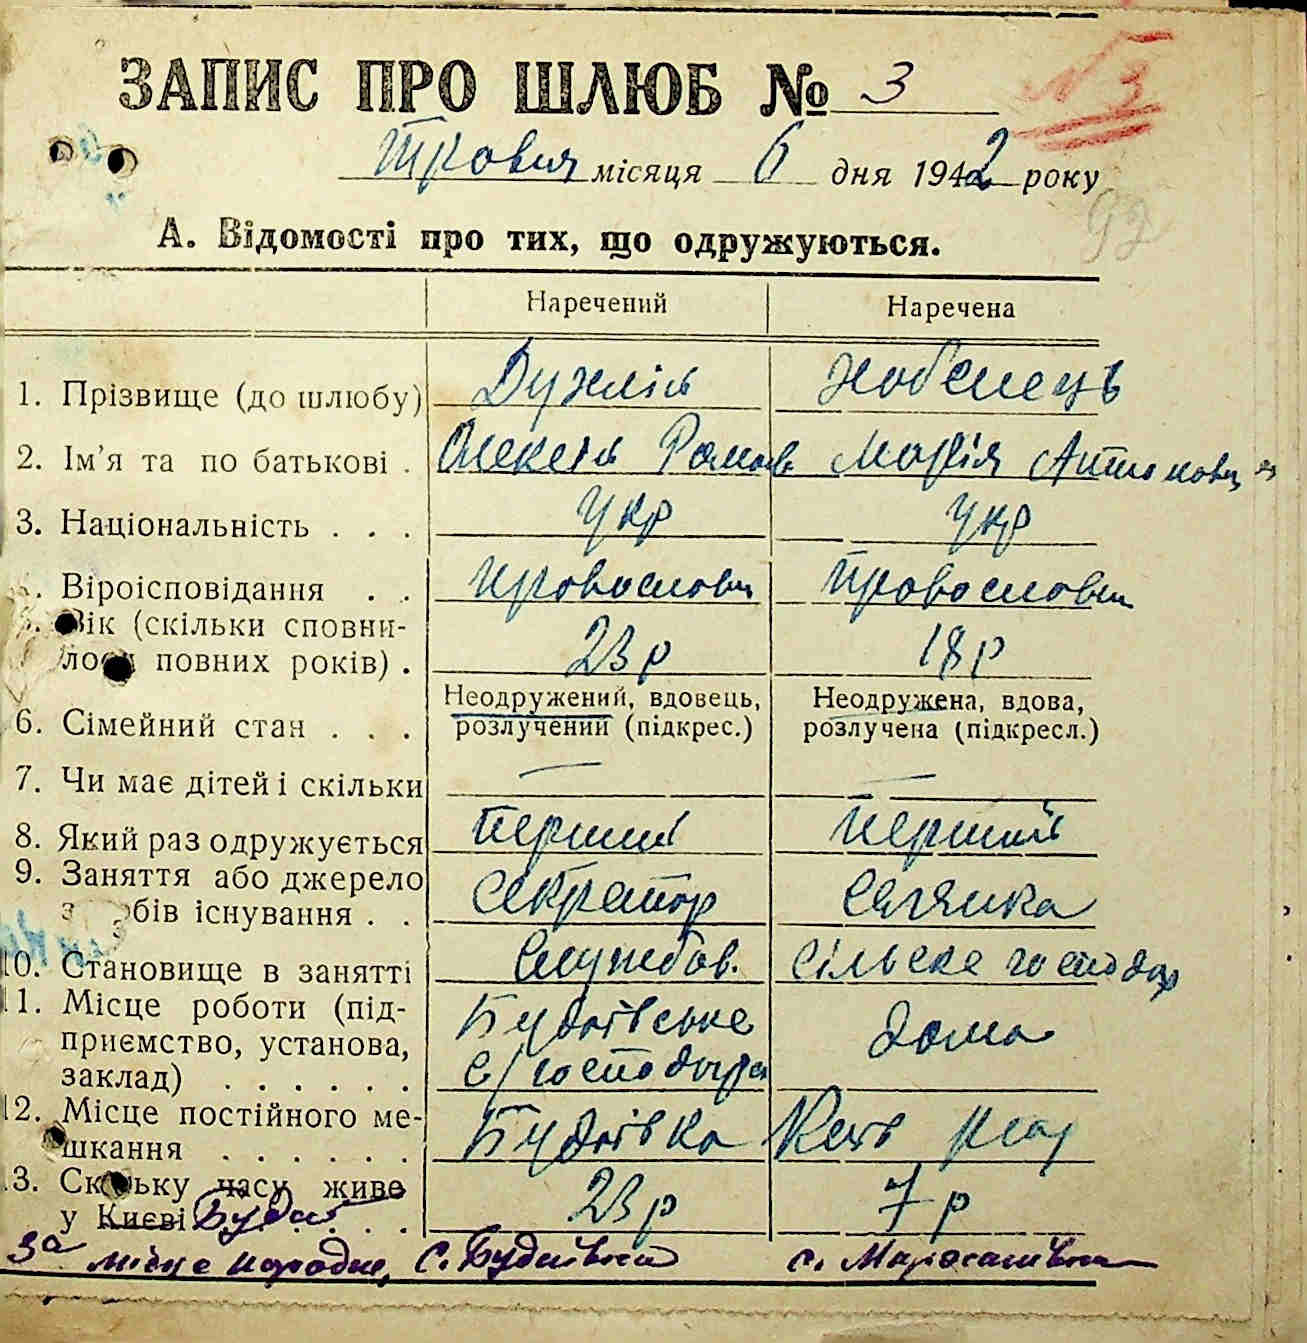 ЗАПИС ПРО ШЛЮБ № 3
№ 3
Травня місяця 6 дня 1942 року
92
А. Відомості про тих, що одружуються.
Наречений Наречена
1. Прізвище (до шлюбу)
2. Ім'я та по батькові . Олексій Романов Марія Антоновна
3. Національність . . . укр укр
Віроісповідання . . православн православн
Вік (скільки сповни-
повних років) . 23 р 18 р
6. Сімейний стан . . . Неодружений, вдовець, розлучений (підкрес.) Неодружена, вдова, розлучена (підкресл.)
7. Чи має дітей і скільки — —
8. Який раз одружується перший перший
9. Заняття або джерело
існування . . секретар селянка
10. Становище в занятті службов. сільске господар
11. Місце роботи (під-
приємство, установа,
заклад) . . . . . . Будаївське с/господарс дома
12. Місце постійного ме-
шкання . . . . . . Будаївка
13. Скільку часу живе
у Києві Будаї . . . . 23 р 7 р
3а місце народже, с. Будаївка с.